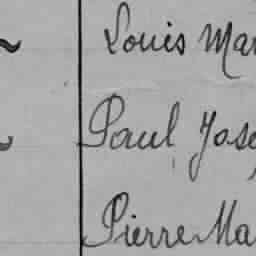 Louis Mar
Paul Jose
Pierre Ma